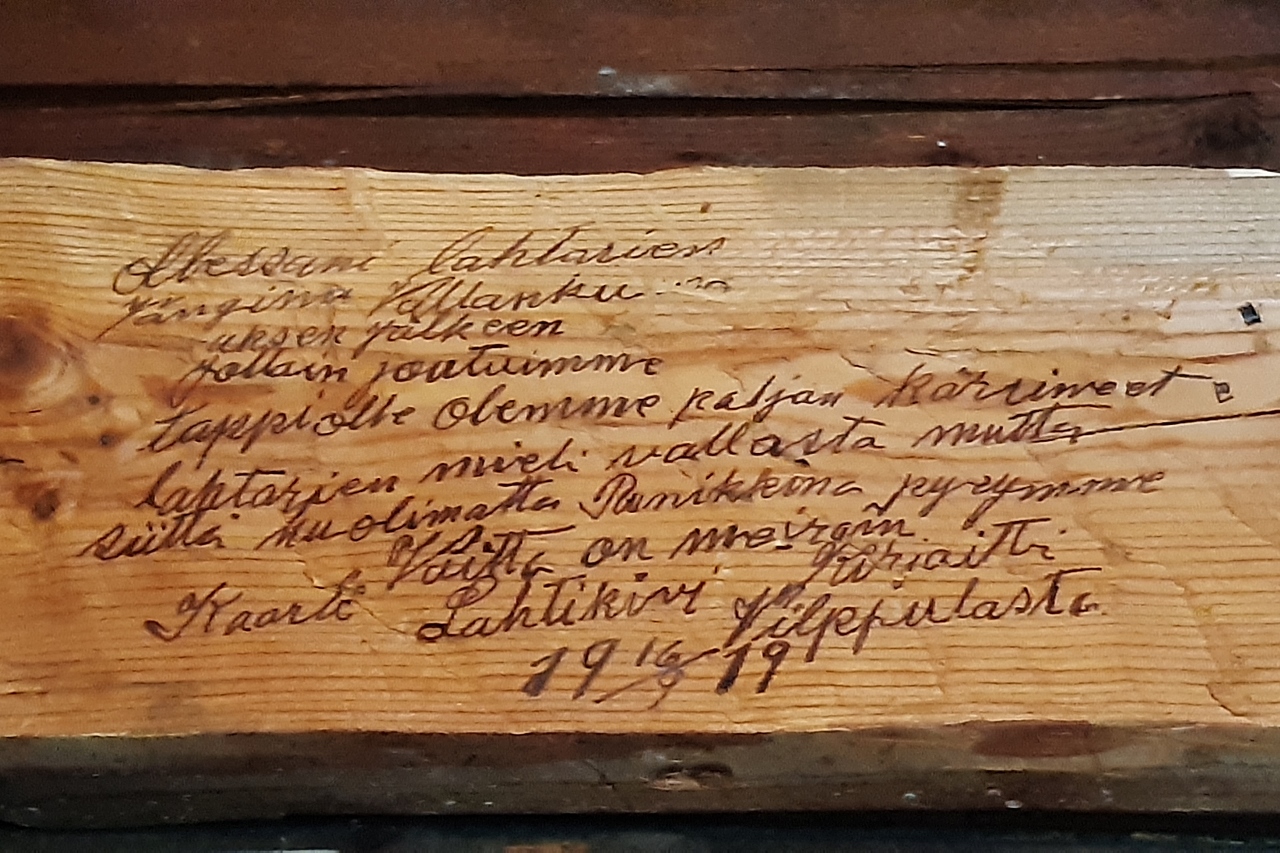 Ollessani lahtarien
vangina Vallanku
uksen jälkeen
jollain jouduimme
tappiolle Olemme paljon kärsineet
lahtarien mieli vallasta mutta
siitä huolimatta Punikkeina pysymme
Voitto on meirän
Kirjoitti
Kaarle Lahtikivi Vilppulasta
19 16/9 19